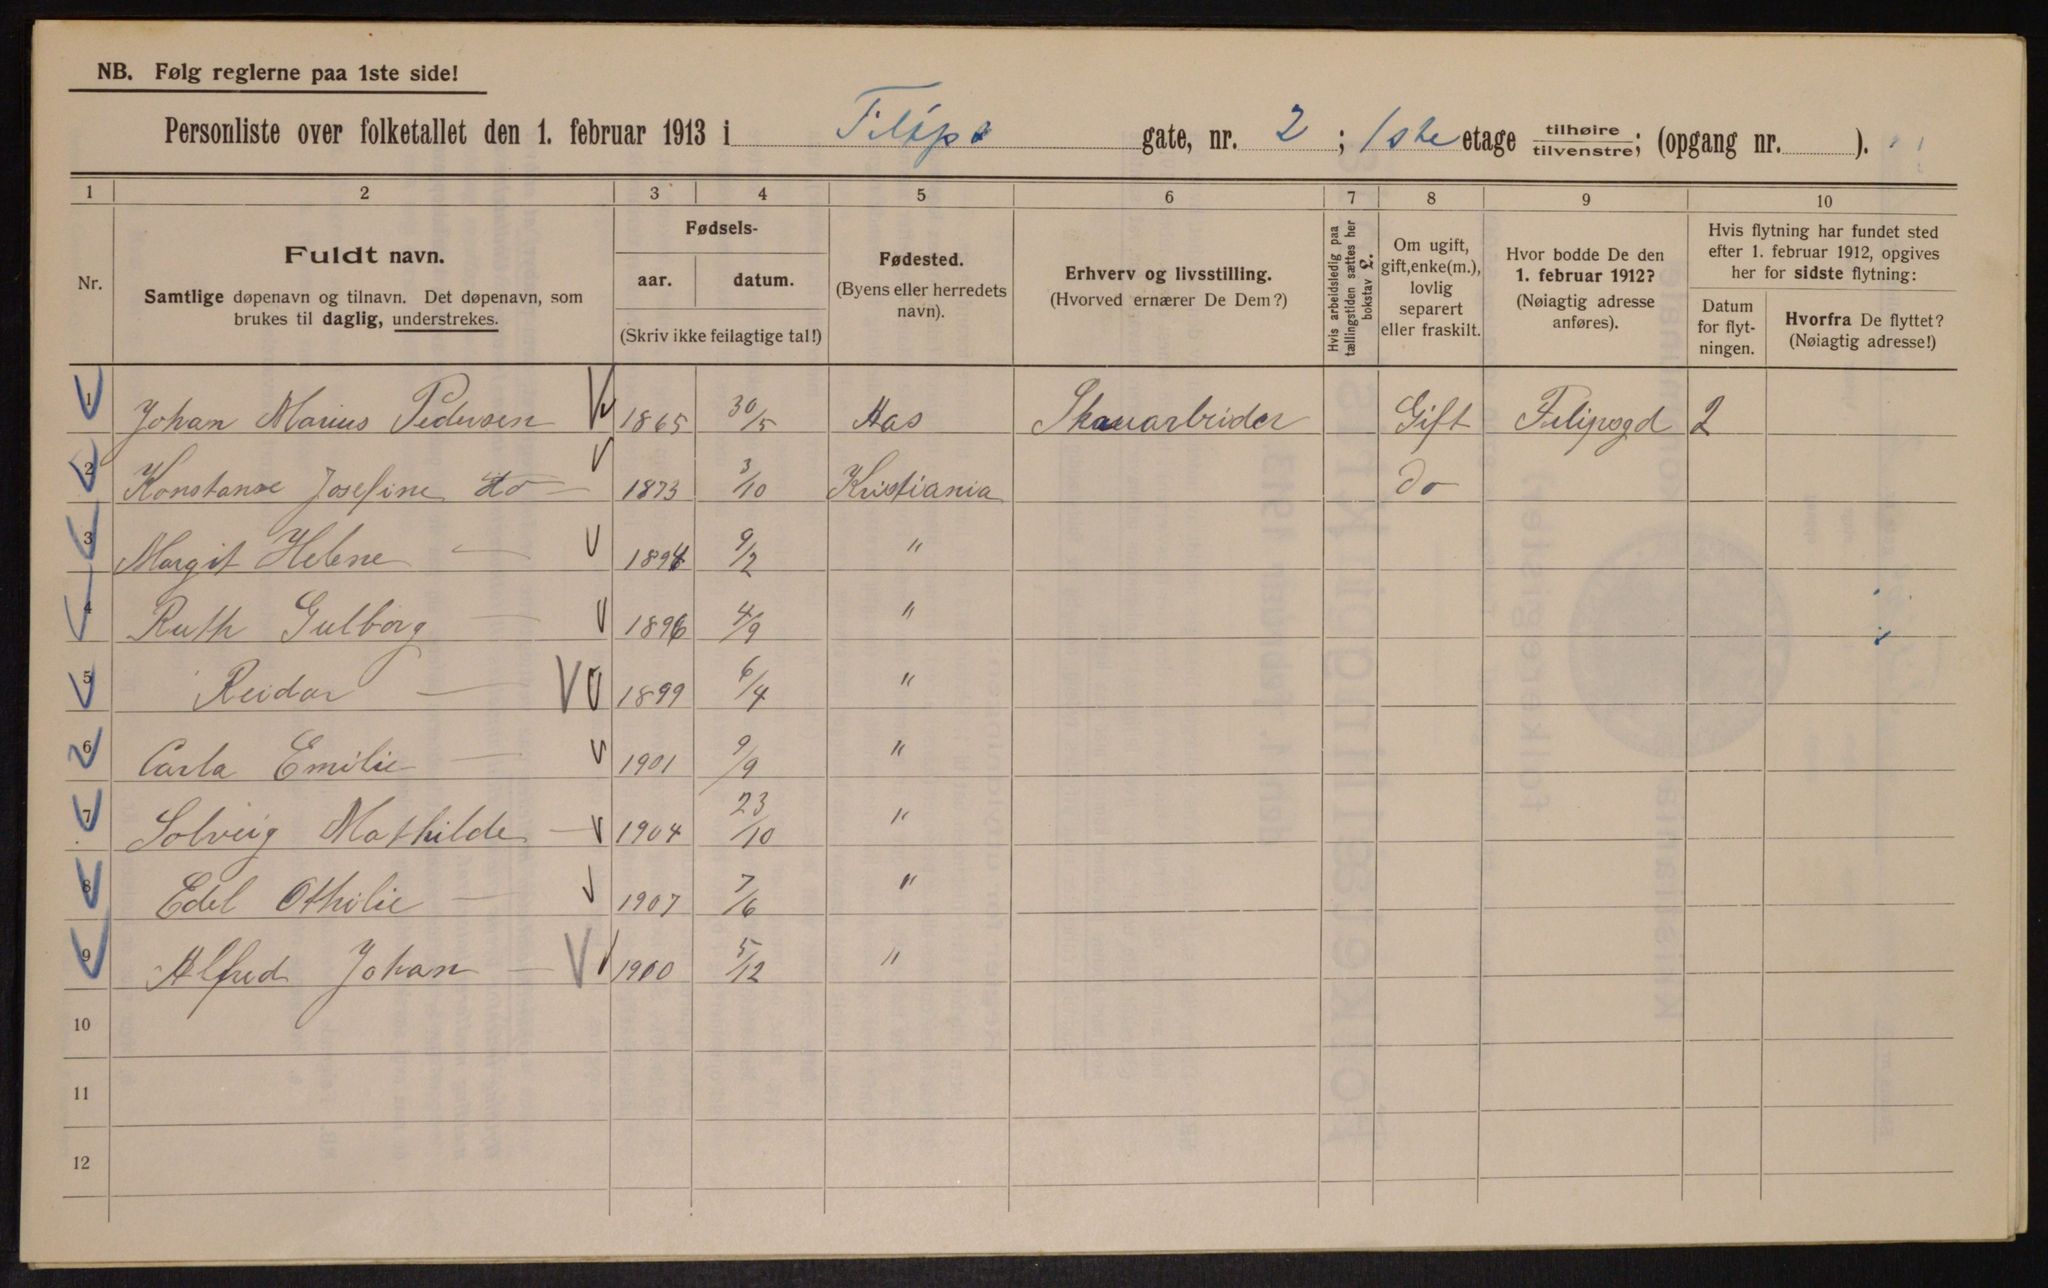 NB. Følg reglerne paa 1ste side!
Personliste over folketallet den 1. februar 1913 i Filips gate, nr. 2; 1ste etage tilhøire/tilvenstre; (opgang nr. ).
1 2 3 4 5 6 7 8 9 10
Nr.
Fuldt navn.
Samtlige døpenavn og tilnavn. Det døpenavn, som
brukes til daglig, understrekes.
Fødsels-
aar. datum.
(Skriv ikke feilagtige tal!)
Fødested.
(Byens eller herredets
navn).
Erhverv og livsstilling.
(Hvorved ernærer De Dem?)
Hvis arbeidsledig paa
tællingstiden sættes her
bokstav L.
Om ugift,
gift, enke(m.),
lovlig
separert
eller fraskilt.
Hvor bodde De den
1. februar 1912?
(Nøiagtig adresse
anføres).
Hvis flytning har fundet sted
efter 1. februar 1912, opgives
her for sidste flytning:
Datum
for flyt-
ningen.
Hvorfra De flyttet?
(Nøiagtig adresse!)
1 Johan Marius Pedersen 1865 30/5 Aas Skauarbeider Gift Filipsgd 2
2 Konstanse Josefine do 1873 3/10 Kristiania do
3 Margit Helene — 1894 9/2 "
4 Ruth Gulborg — 1896 4/9 "
5 Reidar — 1899 6/4 "
6 Carla Emilie — 1901 9/9 "
7 Solveig Mathilde — 1904 23/10 "
8 Edel Othilie — 1907 7/6 "
9 Alfred Johan — 1900 5/12 "
10
11
12